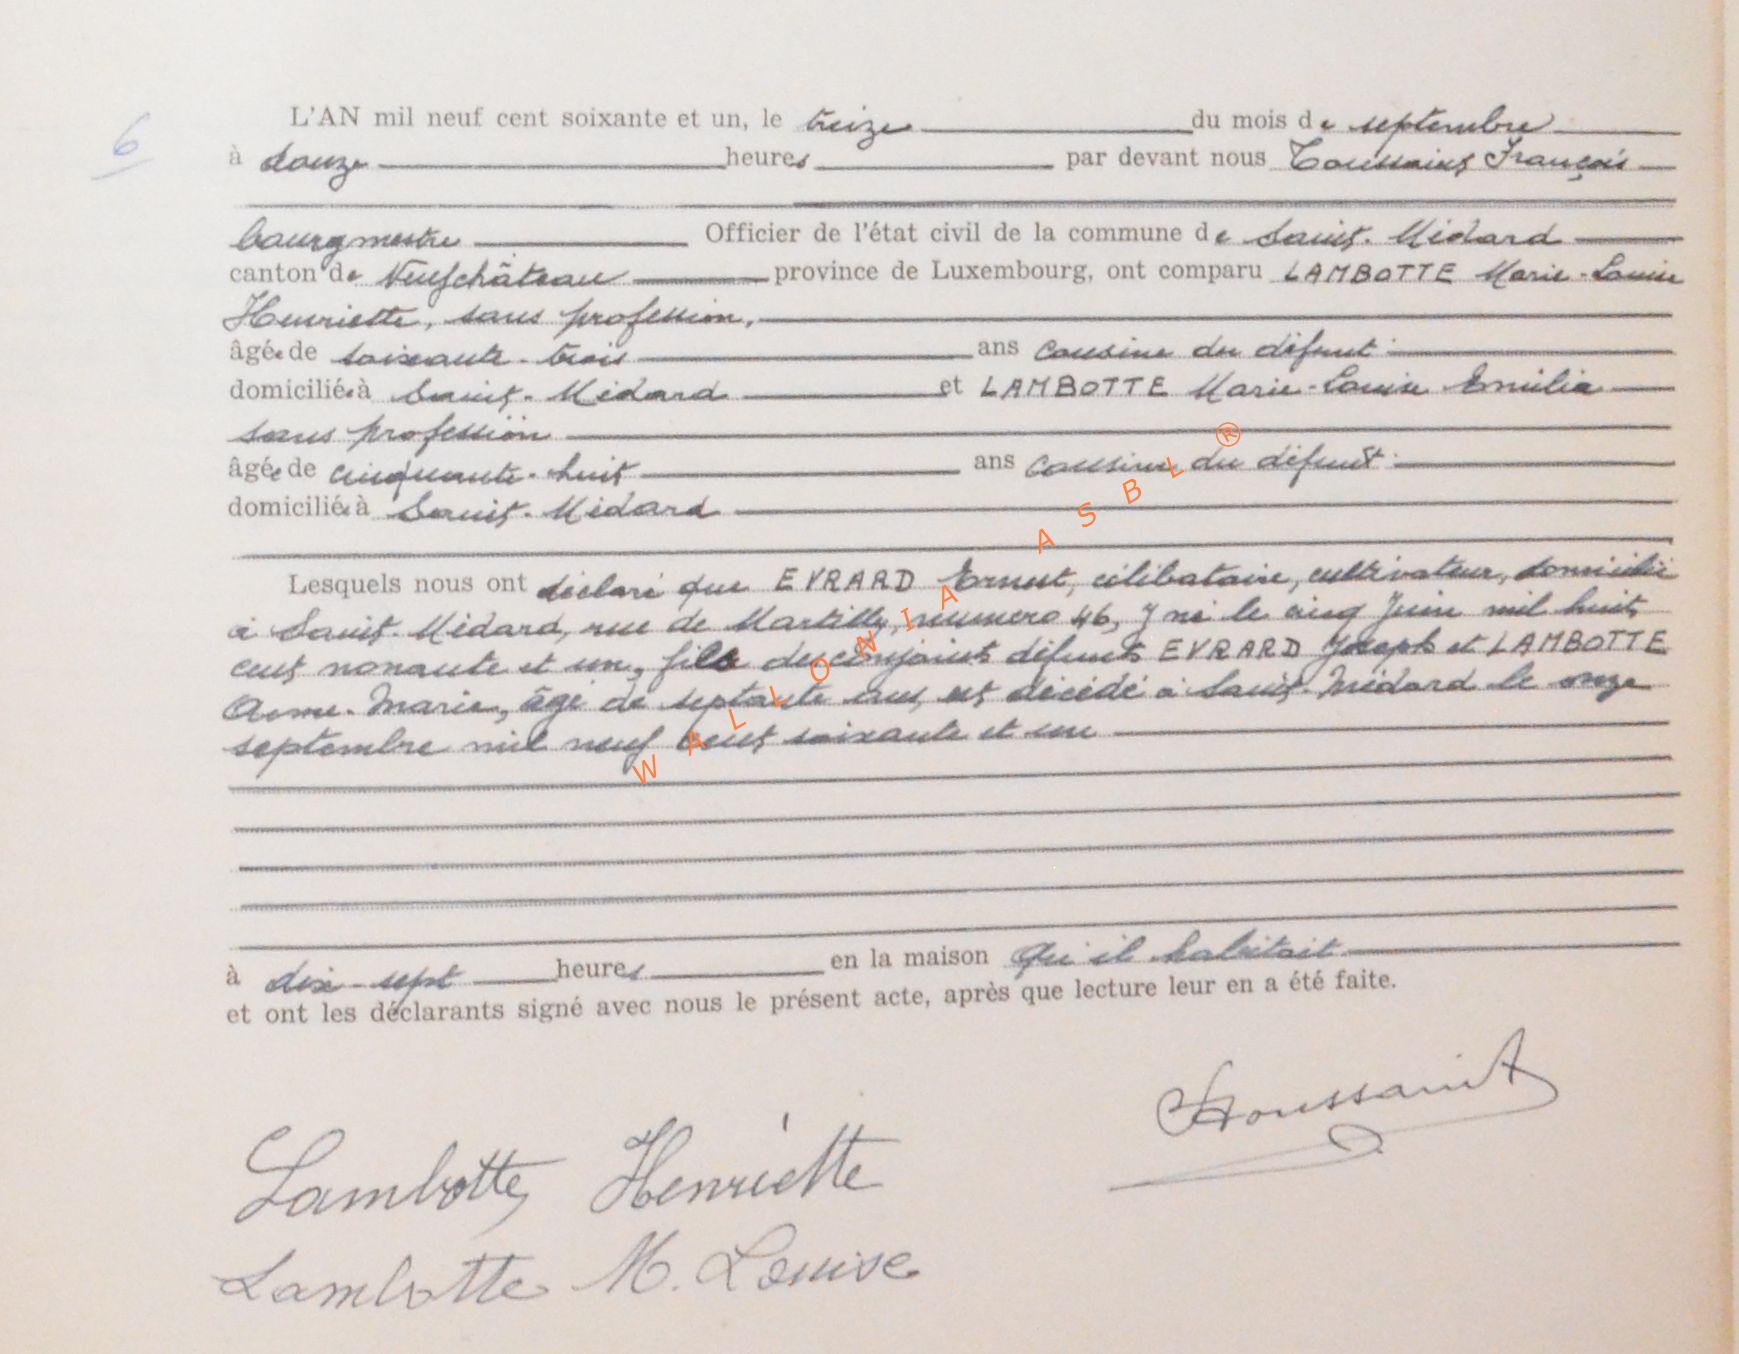 6
L'AN mil neuf cent soixante et un, le treize du mois de septembre
à douze heures par devant nous Toussaint François
bourgmestre Officier de l'état civil de la commune de Saint-Médard
canton de Neufchâteau province de Luxembourg, ont comparu LAMBOTTE Marie-Louise
Henriette, sans profession,
âgée de soixante-trois ans cousine du défunt
domiciliée à Saint-Médard et LAMBOTTE Marie-Louise Emilia
sans profession
âgée de cinquante-huit ans cousine du défunt
domiciliée à Saint-Médard
Lesquels nous ont déclaré que EVRARD Ernest, célibataire, cultivateur, domicilié
à Saint-Médard, rue de Martilly, numero 46, y né le cinq Juin mil huit
cent nonante et un, fils des conjoints défunts EVRARD Joseph et LAMBOTTE
Anne-Marie, âgé de septante ans, est décédé à Saint-Médard le onze
septembre mil neuf cent soixante et un
à dix-sept heures en la maison qu'il habitait
et ont les déclarants signé avec nous le présent acte, après que lecture leur en a été faite.
Toussaint
Lambotte Henriette
Lambotte M. Louise
WALLONIA ASBL ®